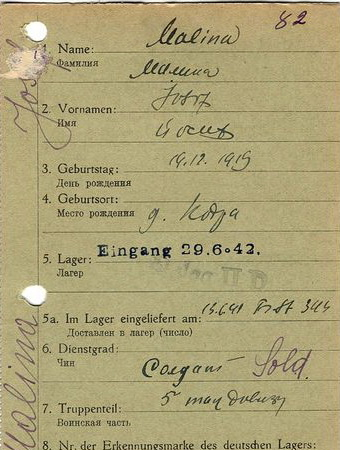 82
1. Name: Malina
Фамилия Малина
2. Vornamen: Josef
Имя Иосиф
3. Geburtstag: 19.12.1919
День рождения
4. Geburtsort:
Место рождения д.
5. Lager: Eingang 29.6.42.
Лагер
5a. Im Lager eingeliefert am:
Доставлен в лагер (число)
6. Dienstgrad: Солдат Sold.
Чин
7. Truppenteil: 5
Воинская часть
8. Nr. der Erkennungsmarke des deutschen Lagers:
Josef
Malina